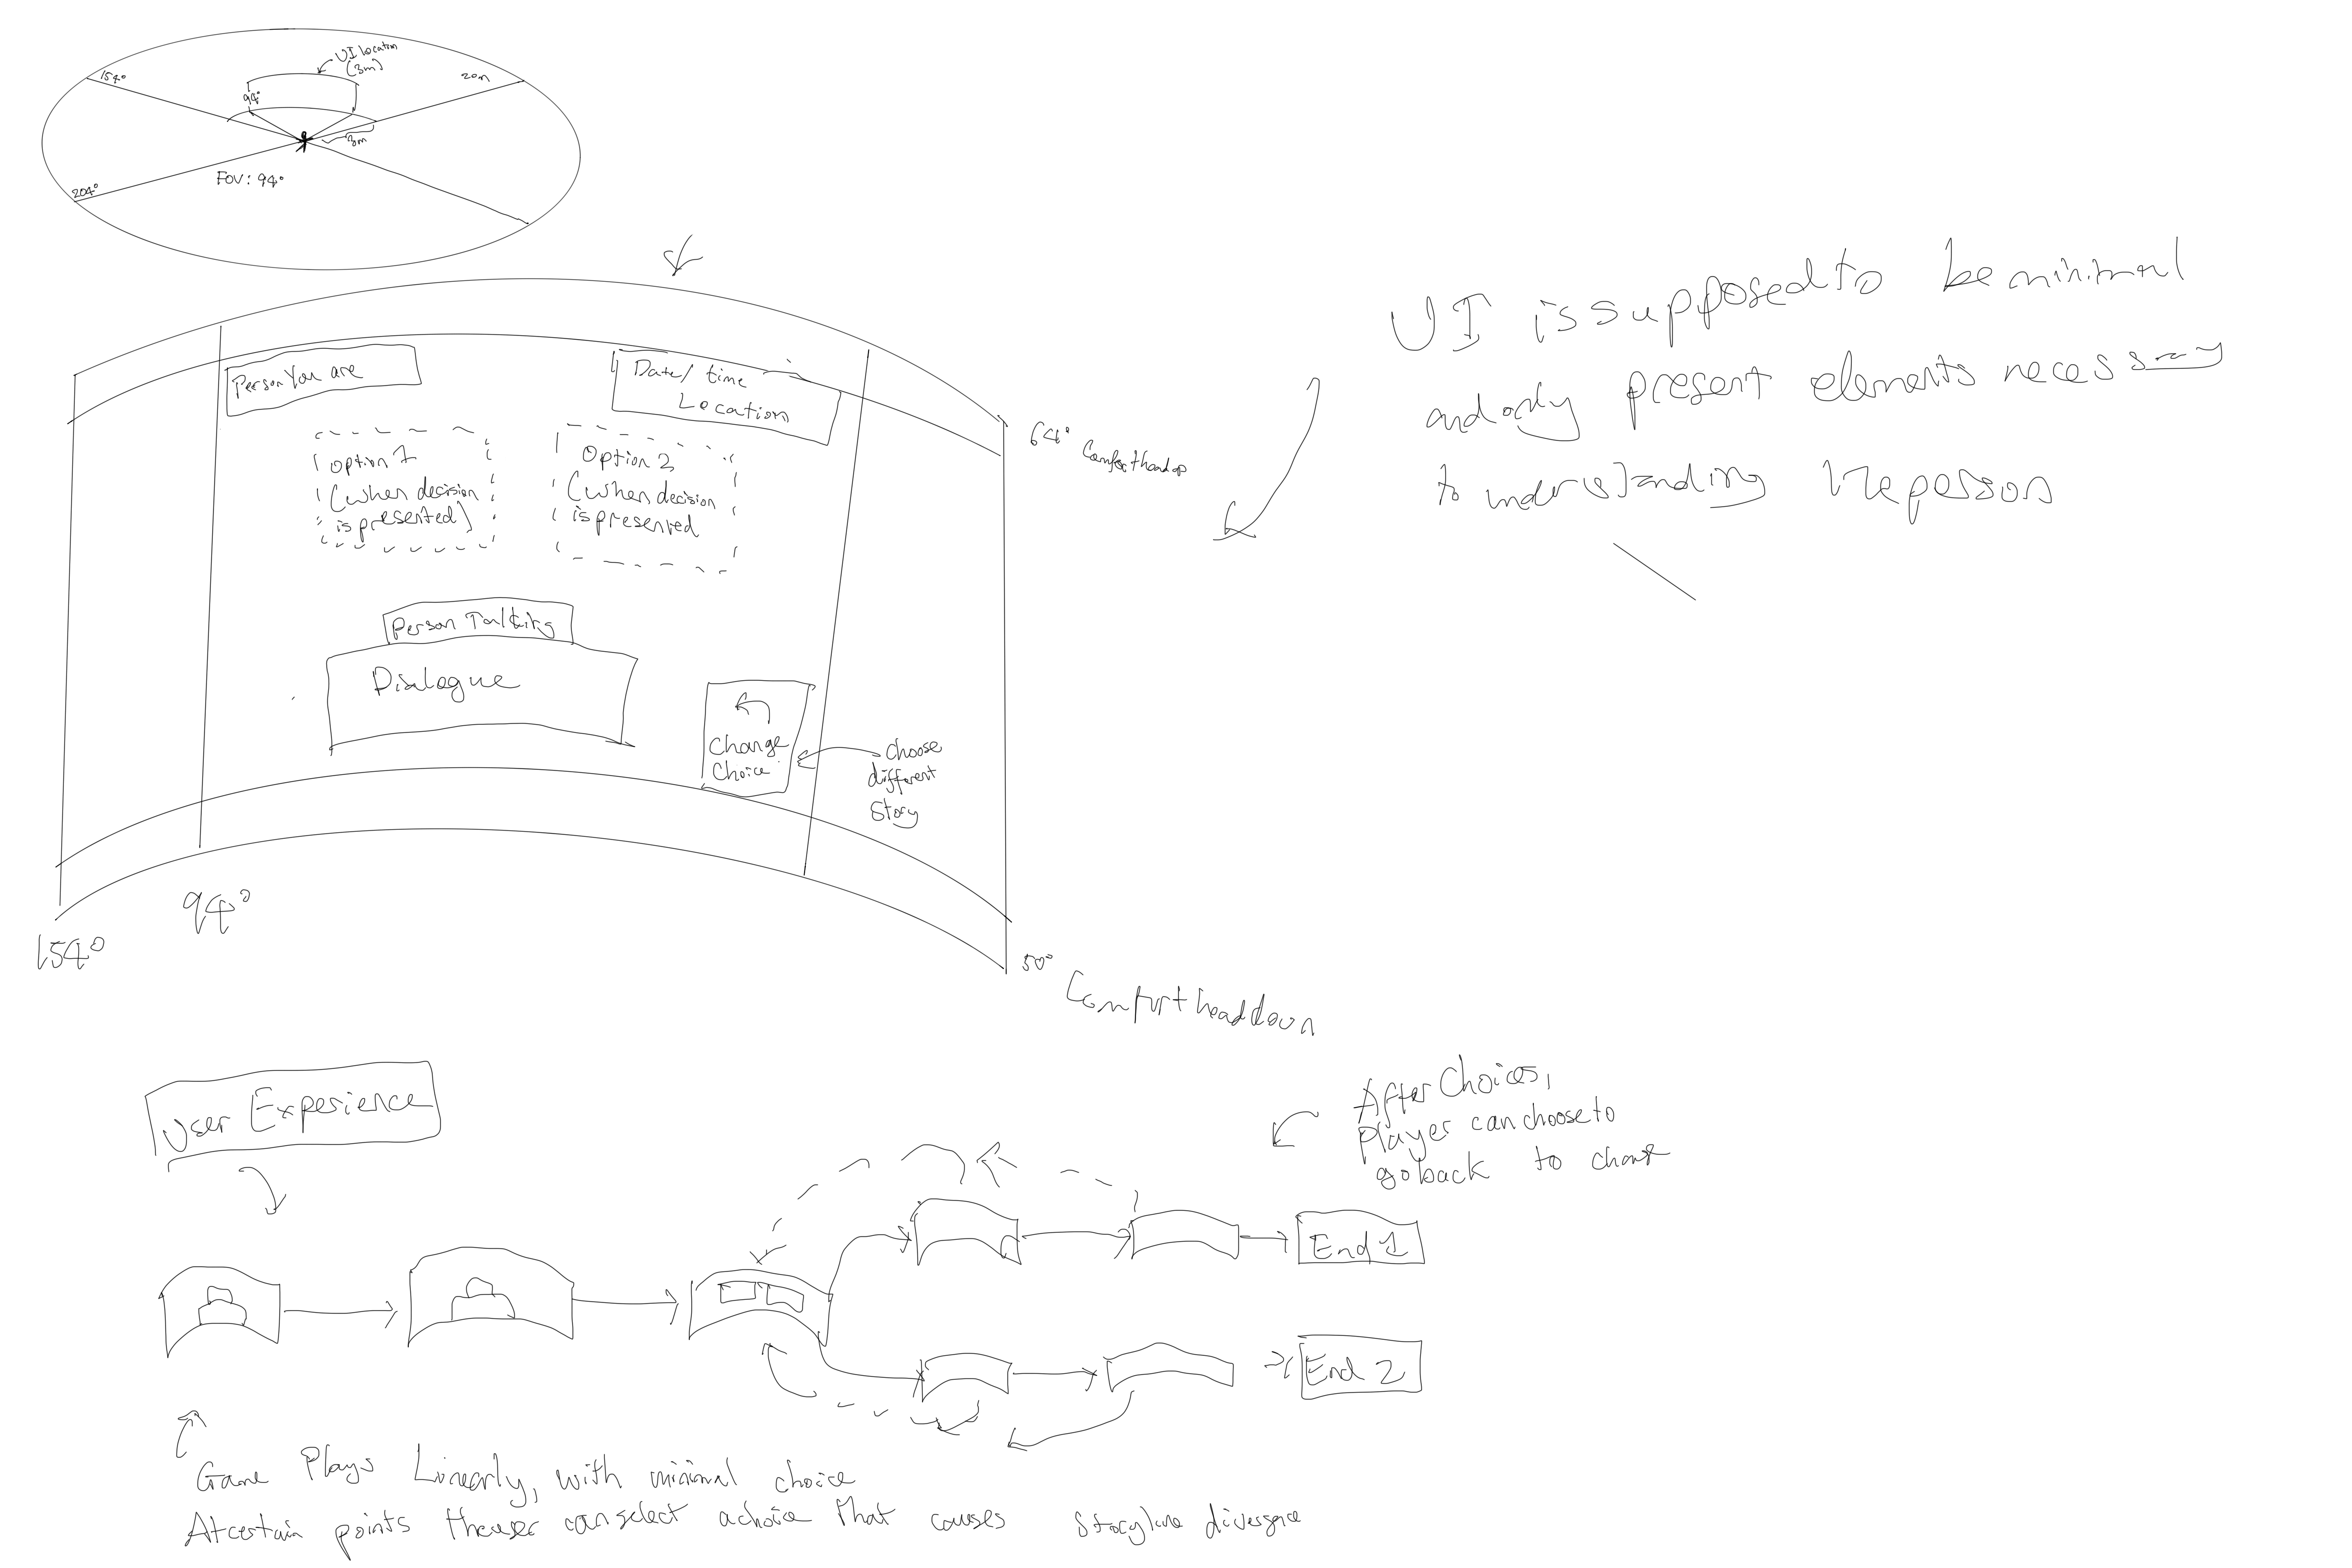 UI location
(3m)
154°
20m
94°
3m
204°
FOV: 94°
Person You are
Date/time
Location
option 1
(when decision
is presented)
Option 2
(when decision
is presented
Person Talking
Dialogue
Change
Choice
choose
different
Story
64°
Comfort head up
94°
154°
50°
Comfort head down
UI is supposed to be minimal
and only present elements necessary
to understanding the person
User Experience
After Choices,
Player can choose to
go back to change
End 1
End 2
Game Plays Linearly, with minimal choice
At certain points the user can select a choice that causes storyline divergence